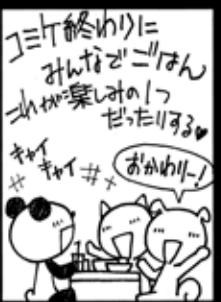 コミケ終わりに
みんなでごはん
これが楽しみの1つ
だったりする♥
キャイ
キャイ
おかわりー!